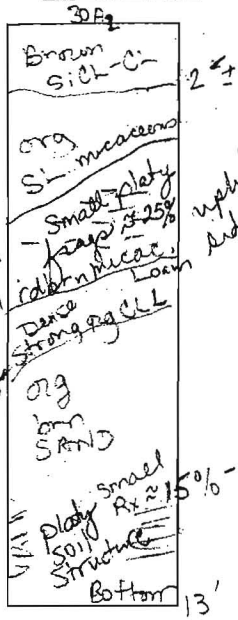 Brown
SiCL-CL
2' ±
org
SL micaceous
Small platy
frags ≈ 25%
rdbrn micac.
Loam
Dense
Strong org CLL
org
brn
SAND
platy small
Rx ≈ 15%
soil
structure
Bottom 13'